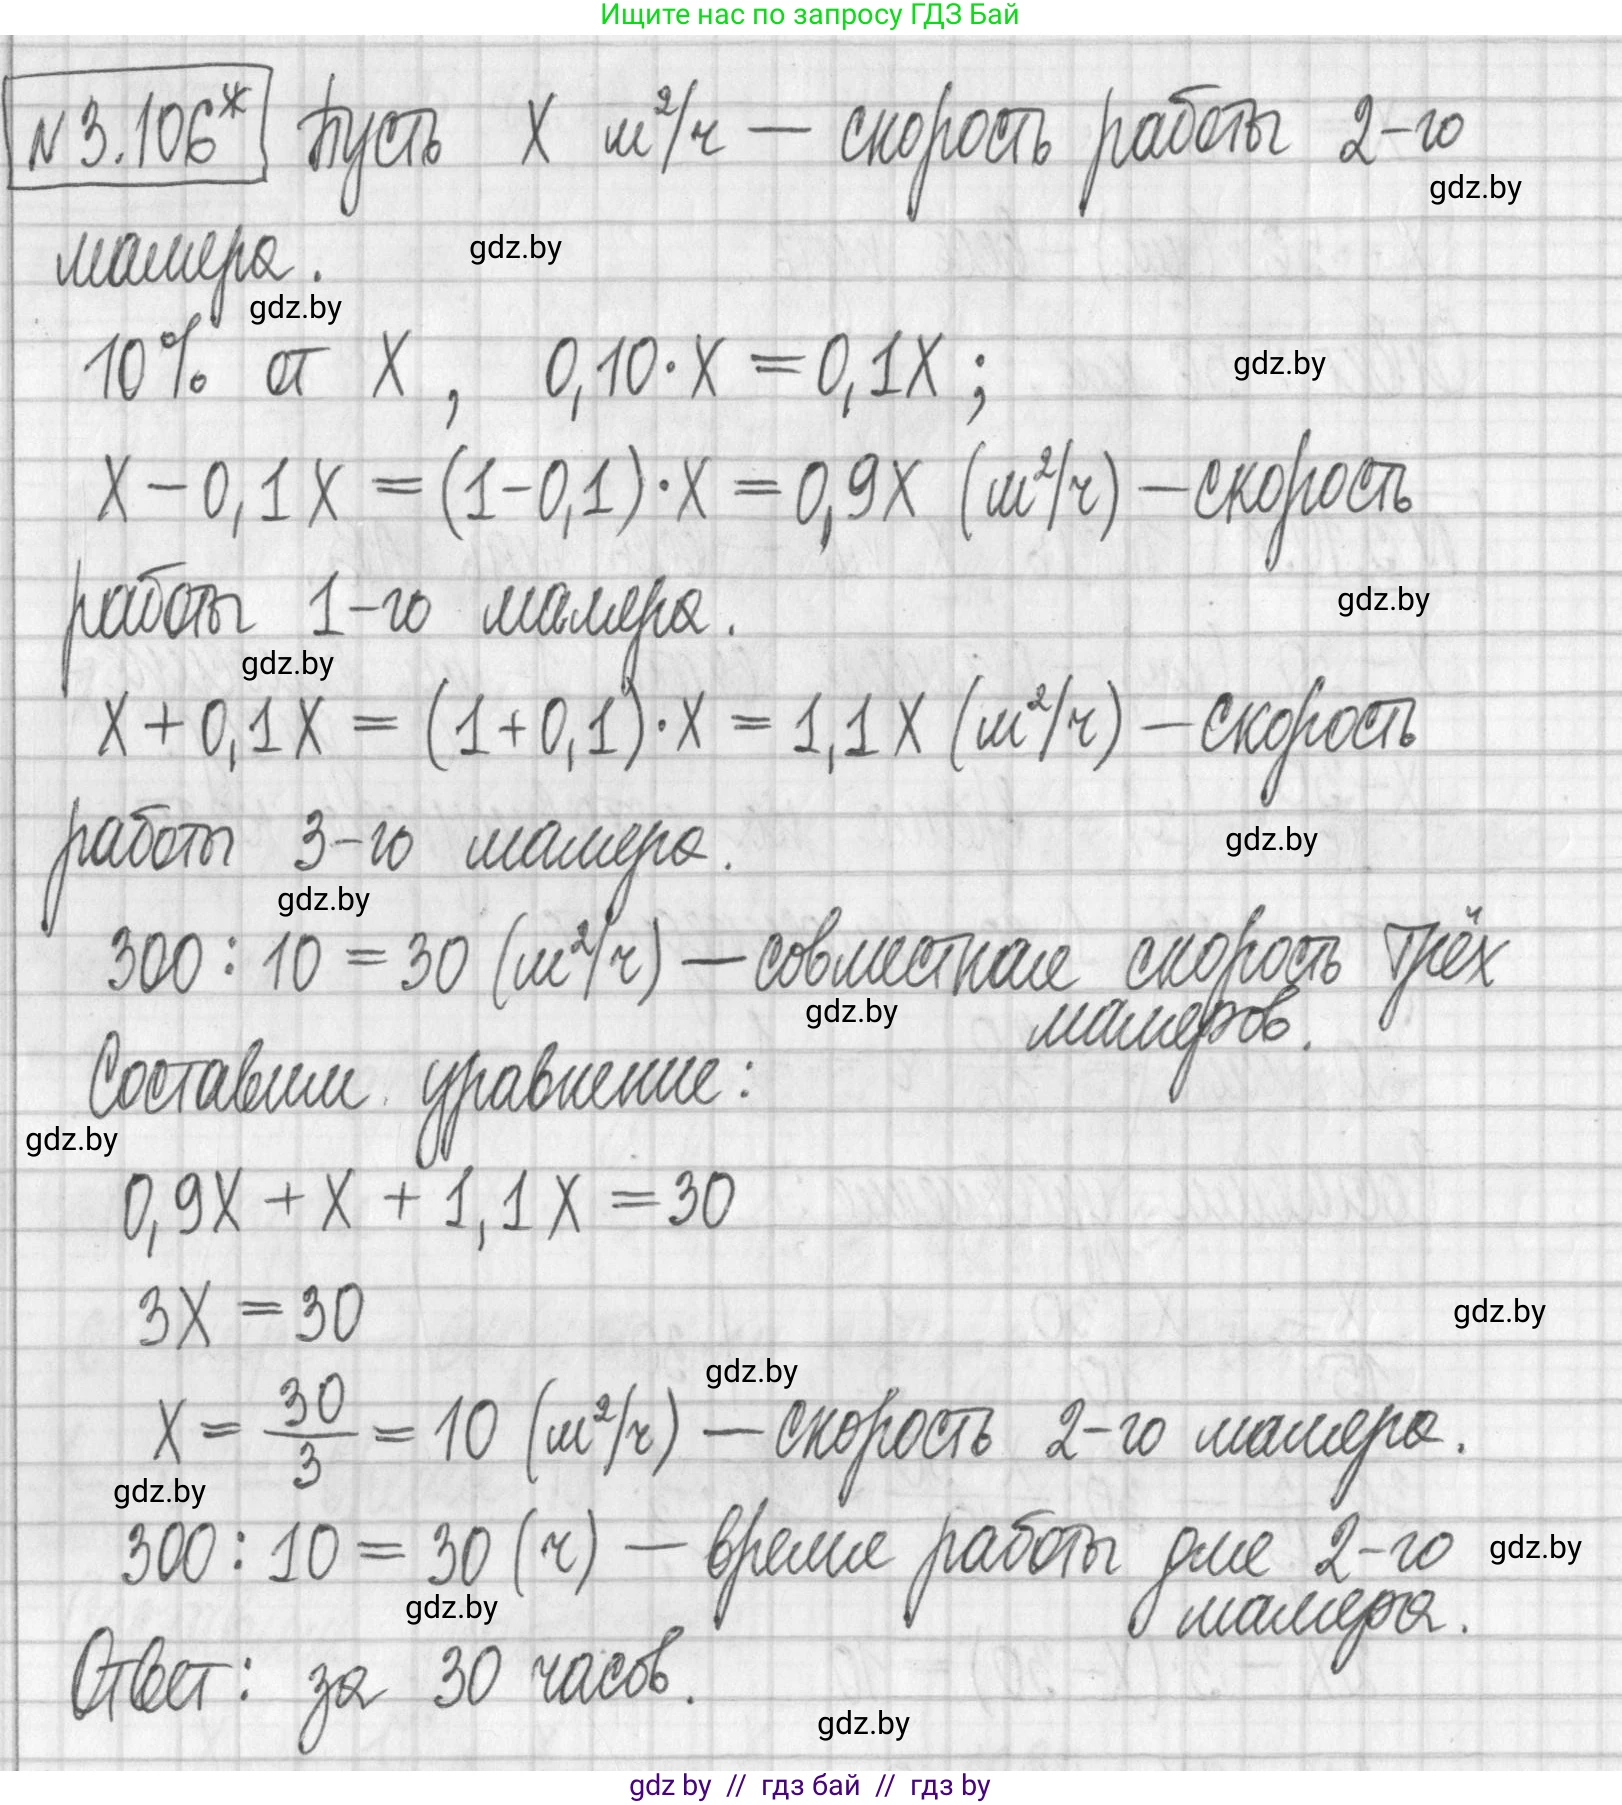 Ищите нас по запросу ГДЗ Бай
N 3.106* Пусть x м²/ч — скорость работы 2-го
gdz.by
маляра.
gdz.by
gdz.by
10% от x, 0,10·x = 0,1x;
gdz.by
x - 0,1x = (1-0,1)·x = 0,9x (м²/ч) — скорость
работы 1-го маляра.
gdz.by
gdz.by
x + 0,1x = (1+0,1)·x = 1,1x (м²/ч) — скорость
работы 3-го маляра.
gdz.by
gdz.by
300 : 10 = 30 (м²/ч) — совместная скорость трёх
маляров.
gdz.by
Составим уравнение:
gdz.by
0,9x + x + 1,1x = 30
3x = 30
gdz.by
gdz.by
x = 30/3 = 10 (м²/ч) — скорость 2-го маляра.
gdz.by
300 : 10 = 30 (ч) — время работы для 2-го
gdz.by
маляра.
gdz.by
Ответ: за 30 часов.
gdz.by
gdz by // гдз бай // гдз by